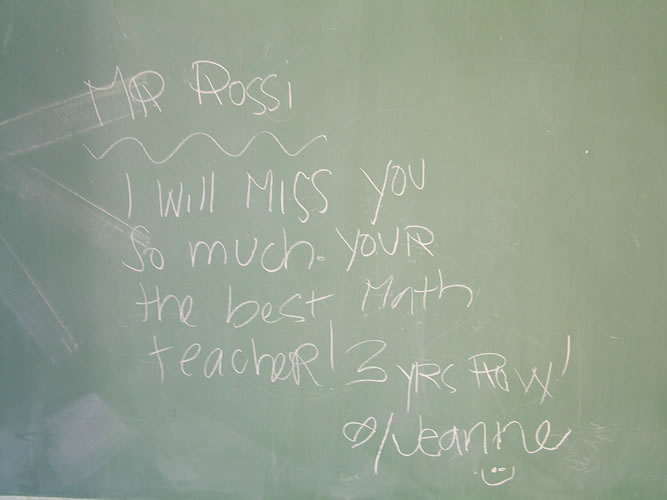 MR Rossi
I will MISS you
So much. YOUR
the best Math
teacher! 3 yrs Row!
Jeanne